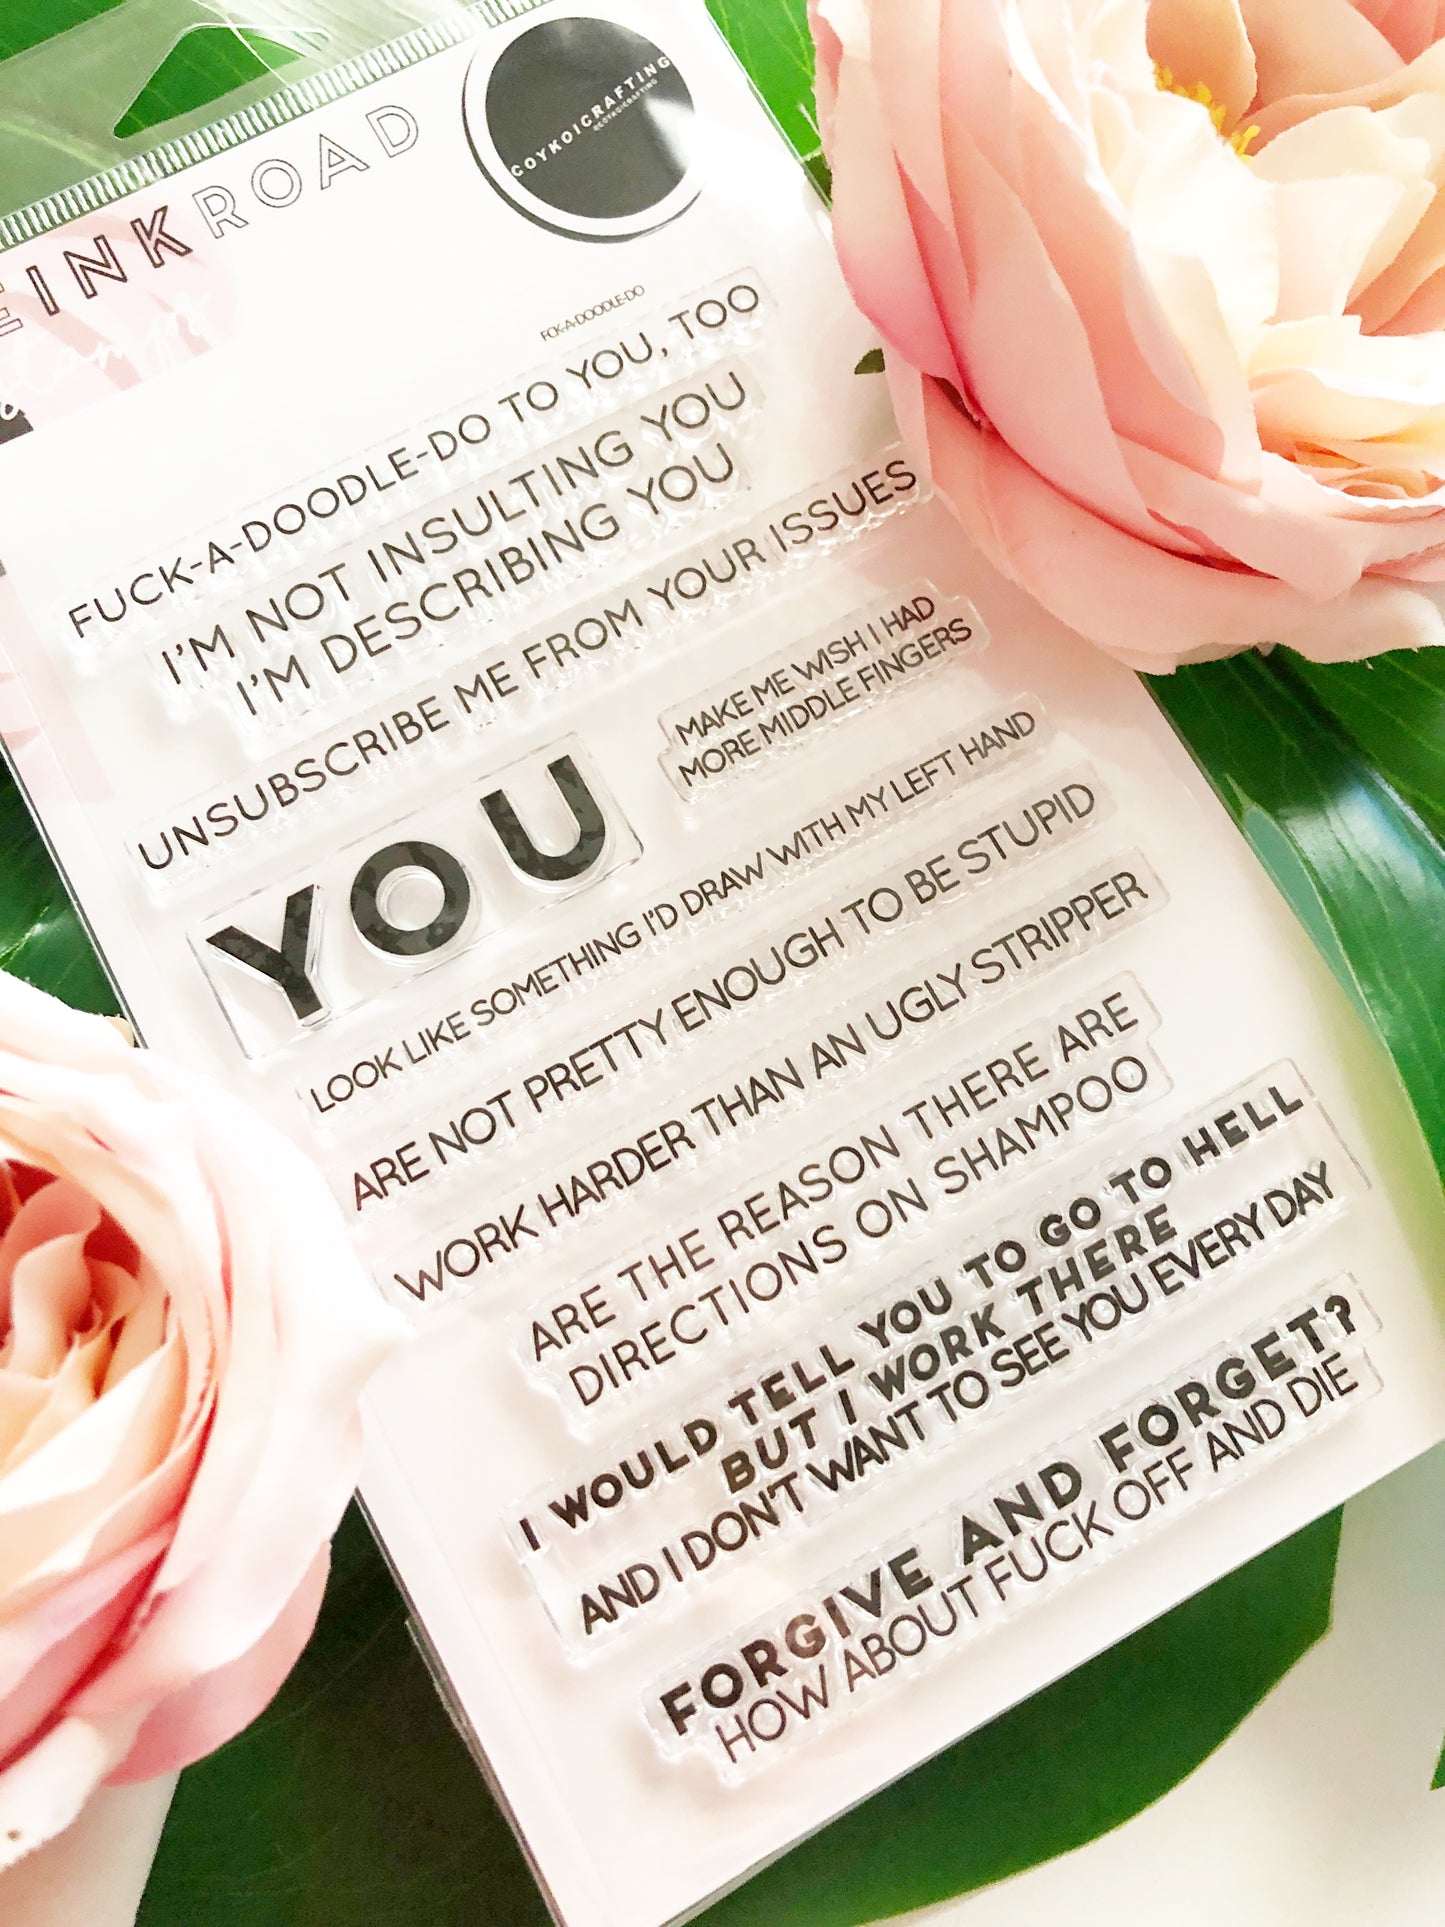 INK ROAD
stamps
COYKOICRAFTING
@COYKOICRAFTING
FCK-A-DOODLE-DO
FUCK-A-DOODLE-DO TO YOU, TOO
I'M NOT INSULTING YOU
I'M DESCRIBING YOU
UNSUBSCRIBE ME FROM YOUR ISSUES
MAKE ME WISH I HAD
MORE MIDDLE FINGERS
YOU
LOOK LIKE SOMETHING I'D DRAW WITH MY LEFT HAND
ARE NOT PRETTY ENOUGH TO BE STUPID
WORK HARDER THAN AN UGLY STRIPPER
ARE THE REASON THERE ARE
DIRECTIONS ON SHAMPOO
I WOULD TELL YOU TO GO TO HELL
BUT I WORK THERE
AND I DON'T WANT TO SEE YOU EVERY DAY
FORGIVE AND FORGET?
HOW ABOUT FUCK OFF AND DIE